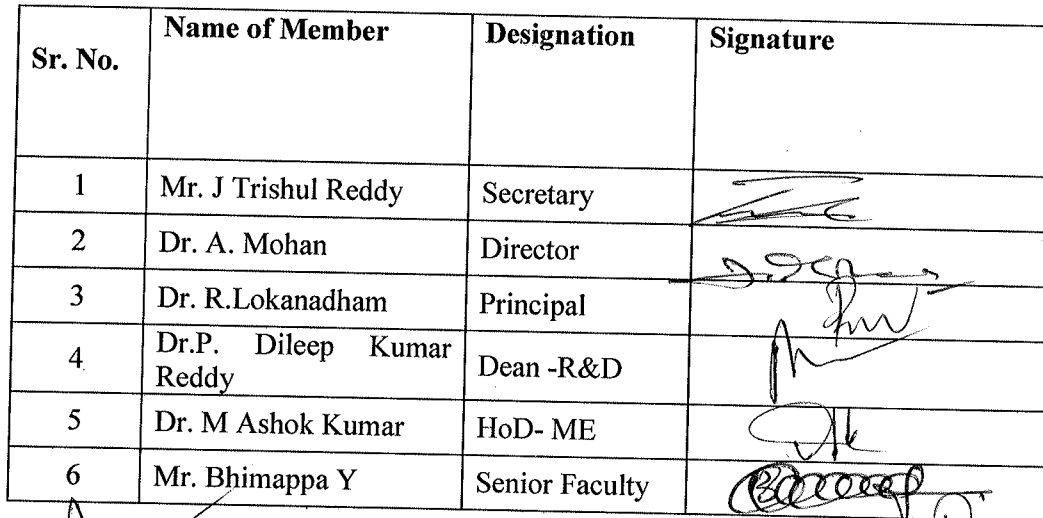 Sr. No. Name of Member Designation Signature
1 Mr. J Trishul Reddy Secretary
2 Dr. A. Mohan Director
3 Dr. R.Lokanadham Principal
4 Dr.P. Dileep Kumar Reddy Dean -R&D
5 Dr. M Ashok Kumar HoD- ME
6 Mr. Bhimappa Y Senior Faculty